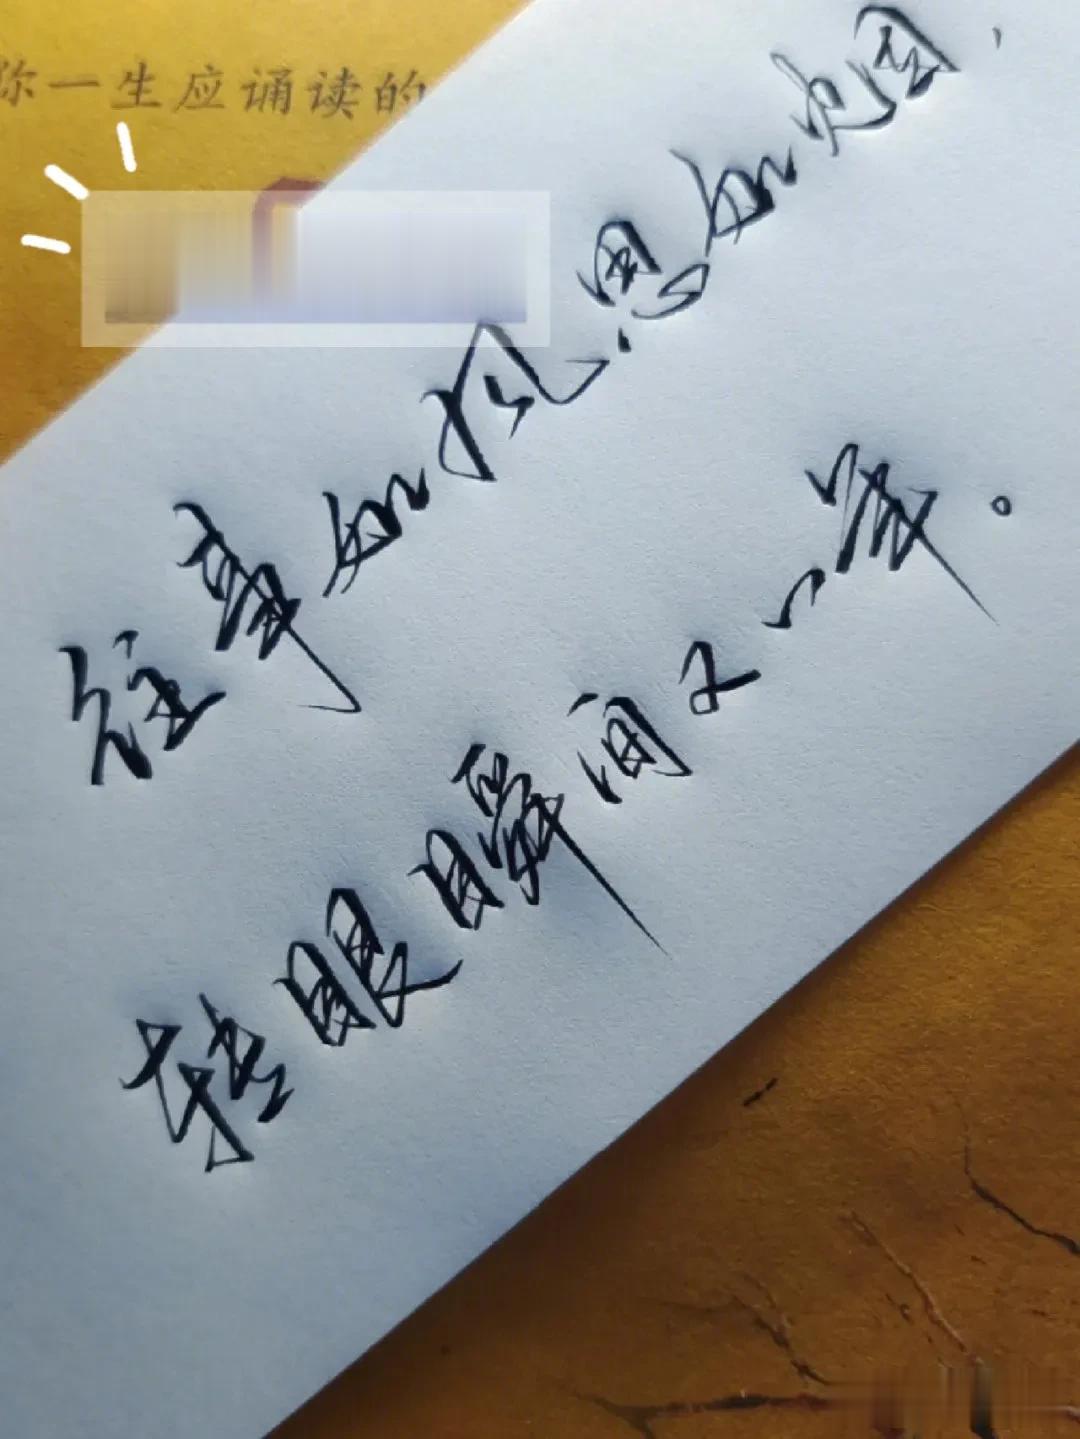 你一生应诵读的
往事如风.恩如烟.
转眼瞬间又一年。